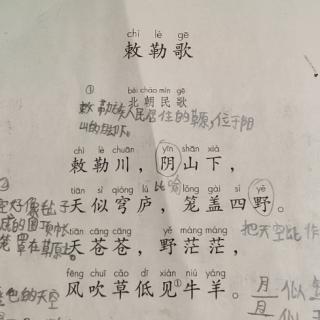 chì lè gē
敕勒歌
①
běi cháo mín gē
北朝民歌
敕勒族人民居住的草原,位于阴
山的
chì lè chuān yīn shān xià
敕勒川,阴山下,
② 比喻
tiān sì qióng lú lǒng gài sì yě
天似穹庐,笼盖四野。
好像毡子
的圆顶帐
笼罩在草原上
把天空比作
tiān cāng cāng yě máng máng
天苍苍,野茫茫,
fēng chuī cǎo dī xiàn niú yáng
风吹草低见①牛羊。
色的天空
似
似